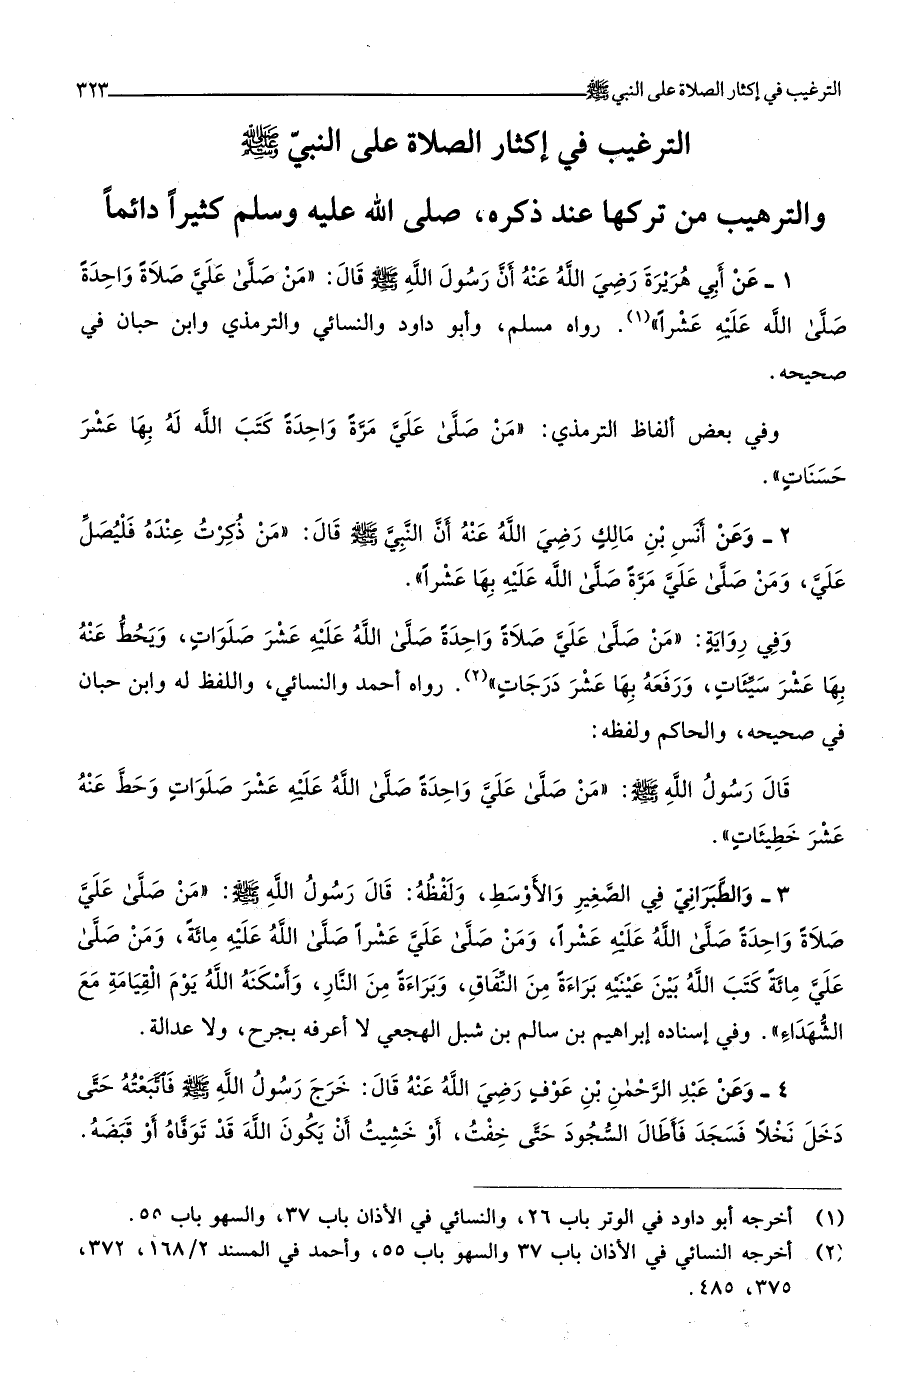 الترغيب في إكثار الصلاة على النبي ﷺ ٣٢٣
الترغيب في إكثار الصلاة على النبيّ ﷺ
والترهيب من تركها عند ذكره، صلى الله عليه وسلم كثيراً دائماً
١ ـ عَنْ أَبِي هُرَيْرَةَ رَضِيَ اللَّهُ عَنْهُ أَنَّ رَسُولَ اللَّهِ ﷺ قَالَ: «مَنْ صَلَّىٰ عَلَيَّ صَلاَةً وَاحِدَةً
صَلَّىٰ اللَّه عَلَيْهِ عَشْراً»(١). رواه مسلم، وأبو داود والنسائي والترمذي وابن حبان في
صحيحه.
وفي بعض ألفاظ الترمذي: «مَنْ صَلَّىٰ عَلَيَّ مَرَّةً وَاحِدَةً كَتَبَ اللَّه لَهُ بِهَا عَشْرَ
حَسَنَاتٍ».
٢ ـ وَعَنْ أَنَسِ بْنِ مَالِكٍ رَضِيَ اللَّهُ عَنْهُ أَنَّ النَّبِيَّ ﷺ قَالَ: «مَنْ ذُكِرْتُ عِنْدَهُ فَلْيُصَلِّ
عَلَيَّ، وَمَنْ صَلَّىٰ عَلَيَّ مَرَّةً صَلَّىٰ اللَّه عَلَيْهِ بِهَا عَشْراً».
وَفِي رِوَايَةٍ: «مَنْ صَلَّىٰ عَلَيَّ صَلاَةً وَاحِدَةً صَلَّىٰ اللَّهُ عَلَيْهِ عَشْرَ صَلَوَاتٍ، وَيَحُطُّ عَنْهُ
بِهَا عَشْرَ سَيِّئَاتٍ، وَرَفَعَهُ بِهَا عَشْرَ دَرَجَاتٍ»(٢). رواه أحمد والنسائي، واللفظ له وابن حبان
في صحيحه، والحاكم ولفظه:
قَالَ رَسُولُ اللَّهِ ﷺ: «مَنْ صَلَّىٰ عَلَيَّ وَاحِدَةً صَلَّىٰ اللَّهُ عَلَيْهِ عَشْرَ صَلَوَاتٍ وَحَطَّ عَنْهُ
عَشْرَ خَطِيئَاتٍ».
٣ ـ وَالطَّبَرَانِيّ فِي الصَّغِيرِ وَالأَوْسَطِ، وَلَفْظُهُ: قَالَ رَسُولُ اللَّهِ ﷺ: «مَنْ صَلَّىٰ عَلَيَّ
صَلاَةً وَاحِدَةً صَلَّىٰ اللَّهُ عَلَيْهِ عَشْراً، وَمَنْ صَلَّىٰ عَلَيَّ عَشْراً صَلَّىٰ اللَّهُ عَلَيْهِ مِائَةً، وَمَنْ صَلَّىٰ
عَلَيَّ مِائَةً كَتَبَ اللَّهُ بَيْنَ عَيْنَيْهِ بَرَاءَةً مِنَ النِّفَاقِ، وَبَرَاءَةً مِنَ النَّارِ، وَأَسْكَنَهُ اللَّهُ يَوْمَ الْقِيَامَةِ مَعَ
الشُّهَدَاءِ». وفي إسناده إبراهيم بن سالم بن شبل الهجعي لا أعرفه بجرح، ولا عدالة.
٤ ـ وَعَنْ عَبْدِ الرَّحْمٰنِ بْنِ عَوْفٍ رَضِيَ اللَّهُ عَنْهُ قَالَ: خَرَجَ رَسُولُ اللَّهِ ﷺ فَاتَّبَعْتُهُ حَتَّى
دَخَلَ نَخْلاً فَسَجَدَ فَأَطَالَ السُّجُودَ حَتَّى خِفْتُ، أَوْ خَشِيتُ أَنْ يَكُونَ اللَّهَ قَدْ تَوَفَّاهُ أَوْ قَبَضَهُ.
(١) أخرجه أبو داود في الوتر باب ٢٦، والنسائي في الأذان باب ٣٧، والسهو باب ٥٥.
(٢) أخرجه النسائي في الأذان باب ٣٧ والسهو باب ٥٥، وأحمد في المسند ١٦٨/٢، ٣٧٢،
٣٧٥، ٤٨٥.